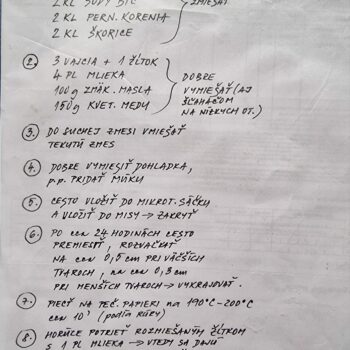 2 KL SÓDY BIC
ZMIEŠAŤ
2 KL PERN. KORENIA
2 KL ŠKORICE
2. 3 VAJCIA + 1 ŽĹTOK
4 PL MLIEKA
100g ZMÄK. MASLA
150g KVET. MEDU
DOBRE
VYMIEŠAŤ (AJ
ŠĽAHAČOM
NA NÍZKYCH OT.)
3. DO SUCHEJ ZMESI VMIEŠAŤ
TEKUTÚ ZMES
4. DOBRE VYMIESIŤ DOHLADKA,
p.p. PRIDAŤ MÚKU
5. CESTO VLOŽIŤ DO MIKROT. SÁČKU
A VLOŽIŤ DO MISY → ZAKRYŤ
6. PO cca 24 HODINÁCH CESTO
PREMIESIŤ, ROZVAĽKAŤ
NA cca 0,5 cm PRI VÄČŠÍCH
TVAROCH, na cca 0,3 cm
PRI MENŠÍCH TVAROCH → VYKRAJOVAŤ.
7. PIECŤ NA PEČ. PAPIERI na 190°C-200°C
cca 10' (podľa rúry)
8. HORÚCE POTRIEŤ ROZMIEŠANÝM ŽĹTKOM
S 1 PL MLIEKA → VTEDY SA DAJÚ